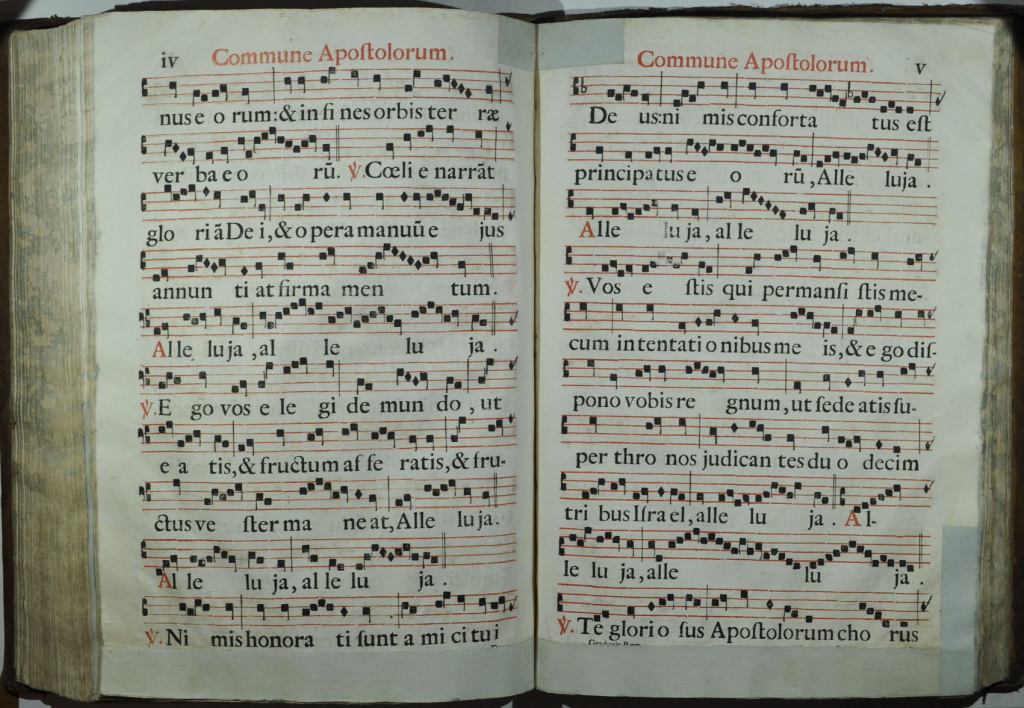 iv Commune Apoſtolorum.
nus e o rum: & in fi nes orbis ter ræ
ver ba e o rū. ℣ Cœli e narrāt
glo ri ā De i, & o pera manuū e jus
annun ti at firma men tum.
Alle luja, al le lu ja.
℣. E go vos e le gi de mun do, ut
e a tis, & fructum af fe ratis, & fru-
ctus ve ſter ma ne at, Alle luja.
Al le lu ja, al le lu ja.
℣. Ni mis honora ti ſunt a mi ci tu i
Commune Apoſtolorum. v
De us: ni mis conforta tus eſt
principatus e o rū, Alle luja.
Alle lu ja, al le lu ja.
℣. Vos e ſtis qui permanſi ſtis me-
cum in tentati o nibus me is, & e go diſ-
pono vobis re gnum, ut ſede atis ſu-
per thro nos judican tes du o decim
tri bus Iſra el, alle lu ja. Al-
le lu ja, alle lu ja.
℣. Te glori o ſus Apoſtolorum cho rus